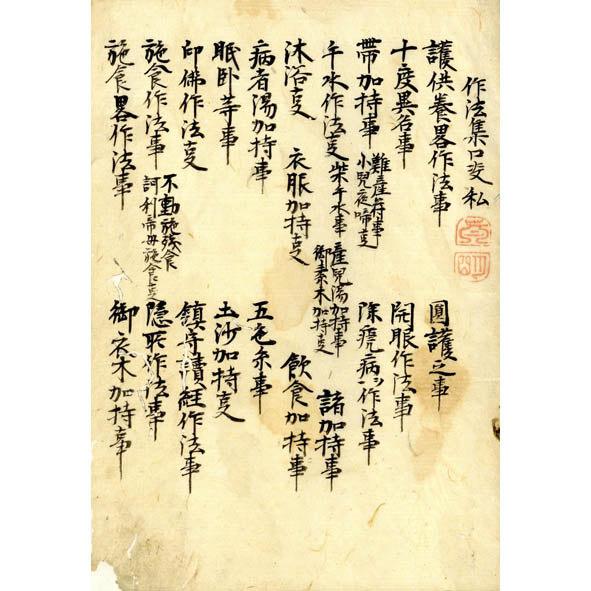 作法集口受 私
護供養畧作法事 圓護之事
十度異名事 開眼作法事
帶加持事 難産符事 小兒夜啼事 除疣病ッ作法事
千水作法事 柴千水事 産兒湯加持事 御素木加持事 諸加持事
沐浴事 衣服加持事 飲食加持事
病者湯加持事 五色糸事
眠卧䒭事 土沙加持事
印佛作法事 鎮守讀經作法事
施食作法事 不動施残食 訶利帝母施食事 隱所作法事
施食畧作法事 御衣木加持事